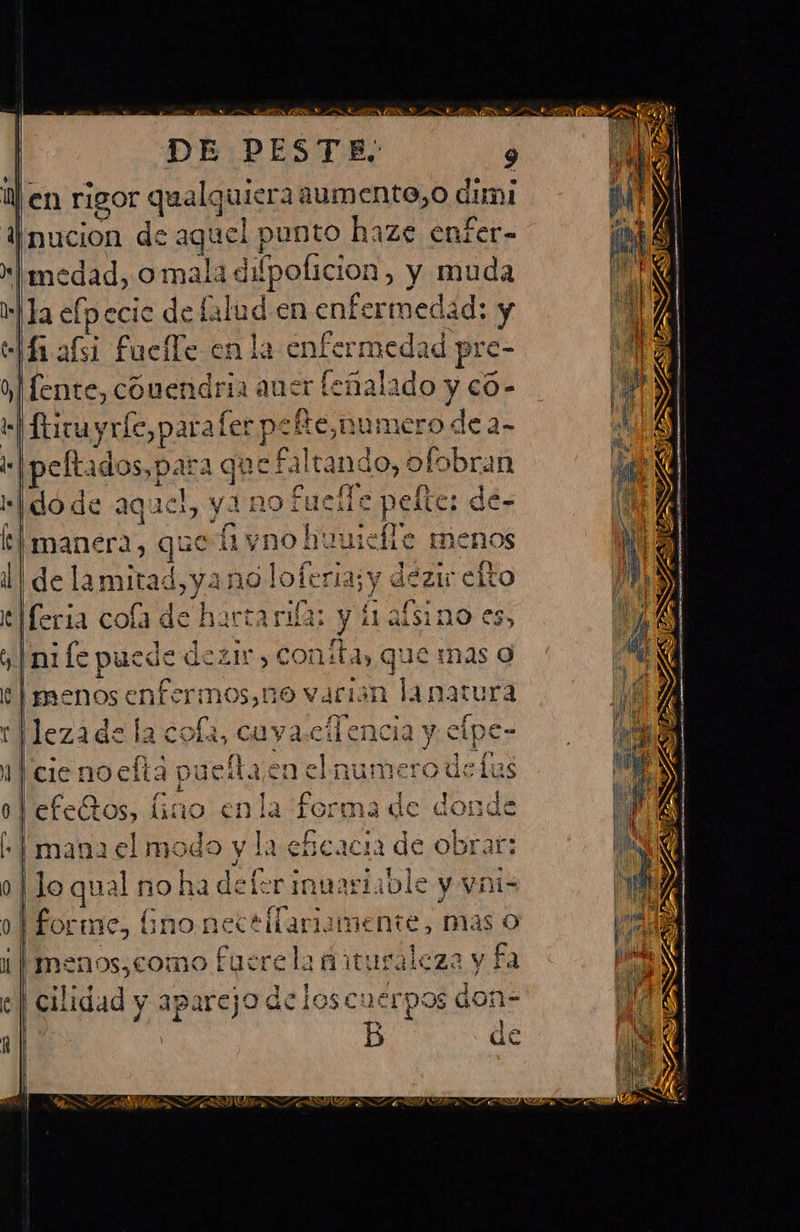 DE PESTE. 9
en rigor qualquiera aumento,o dimi
nucion de aquel punto haze enfer-
medad, o mala difpoſicion, y muda
la eſpecie de ſalud en enfermedad: y
ſi aſsi fueſſe en la enfermedad pre-
ſente, cõuendria auer ſeñalado y cõ-
ſtituyrſe,para ſer peſte,numero de a-
peſtados,para que faltando, o ſobran
do de aquel, ya no fueſſe peſte: de-
manera, que ſi vno huuieſſe menos
de la mitad,ya no lo ſeria;y dezir eſto
ſeria coſa de harta riſa: y ſi aſsi no es,
ni ſe puede dezir, conſta, que mas o
menos enfermos,no varian la natura
leza de la coſa, cuya eſſencia y eſpe-
cie no eſtá pueſta en el numero de ſus
efectos, ſino en la forma de donde
mana el modo y la eficacia de obrar:
lo qual no ha de ſer inuariable y vni-
forme, ſino neceſſariamente, mas o
menos,como fuere la naturaleza y fa
cilidad y aparejo de los cuerpos don-
B de